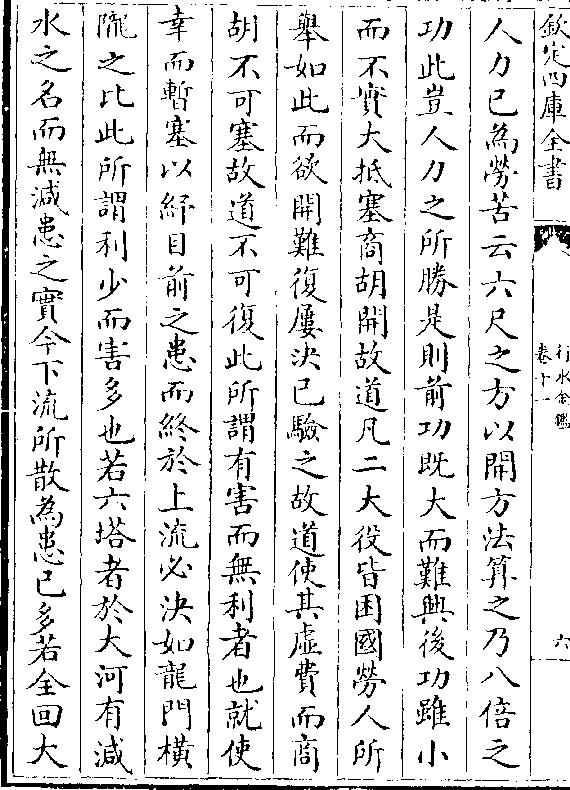 欽定四庫全書
行水金鑑
卷十一
六
人力已為勞苦云六尺之方以開方法算之乃八倍之
功此豈人力之所勝是則前功既大而難興後功雖小
而不實大抵塞商胡開故道凡二大役皆困國勞人所
舉如此而欲開難復屢決已驗之故道使其虛費而商
胡不可塞故道不可復此所謂有害而無利者也就使
幸而暫塞以紓目前之患而終於上流必決如龍門橫
隴之比此所謂利少而害多也若六塔者於大河有減
水之名而無減患之實今下流所散為患已多若全回大